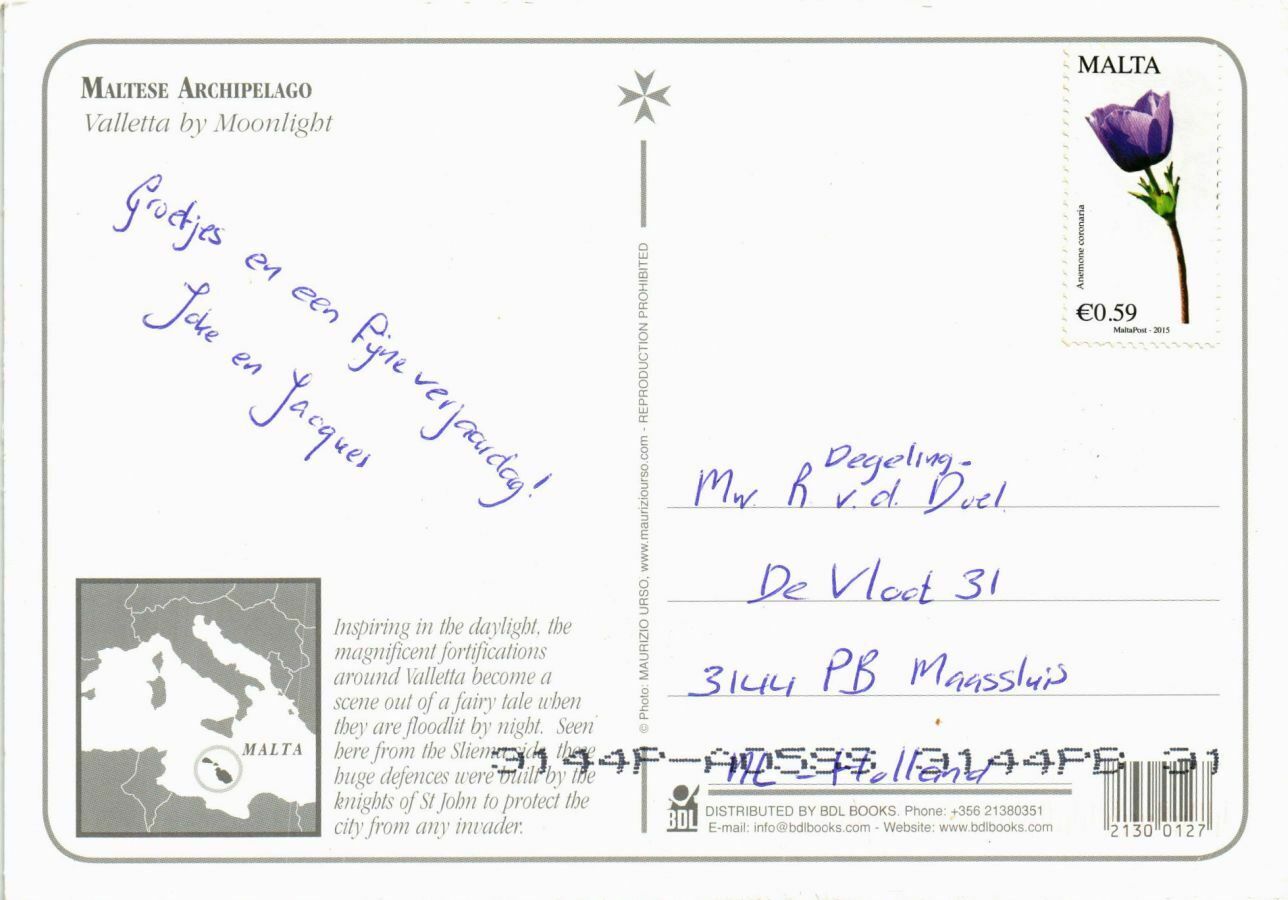 MALTESE ARCHIPELAGO
Valletta by Moonlight
Groetjes en een fijne verjaardag!
Joke en Jacques
Inspiring in the daylight, the
magnificent fortifications
around Valletta become a
scene out of a fairy tale when
they are floodlit by night. Seen
here from the Sliema side, these
huge defences were built by the
knights of St John to protect the
city from any invader.
MALTA
© Photo: MAURIZIO URSO, www.mauriziourso.com - REPRODUCTION PROHIBITED
MALTA
Anemone coronaria
€0.59
MaltaPost - 2015
Degeling-
Mw. R v.d. Doel
De Vloot 31
3144 PB Maassluis
NL - Holland
3144PB 31
BDL
DISTRIBUTED BY BDL BOOKS. Phone: +356 21380351
E-mail: info@bdlbooks.com - Website: www.bdlbooks.com
2130 0127